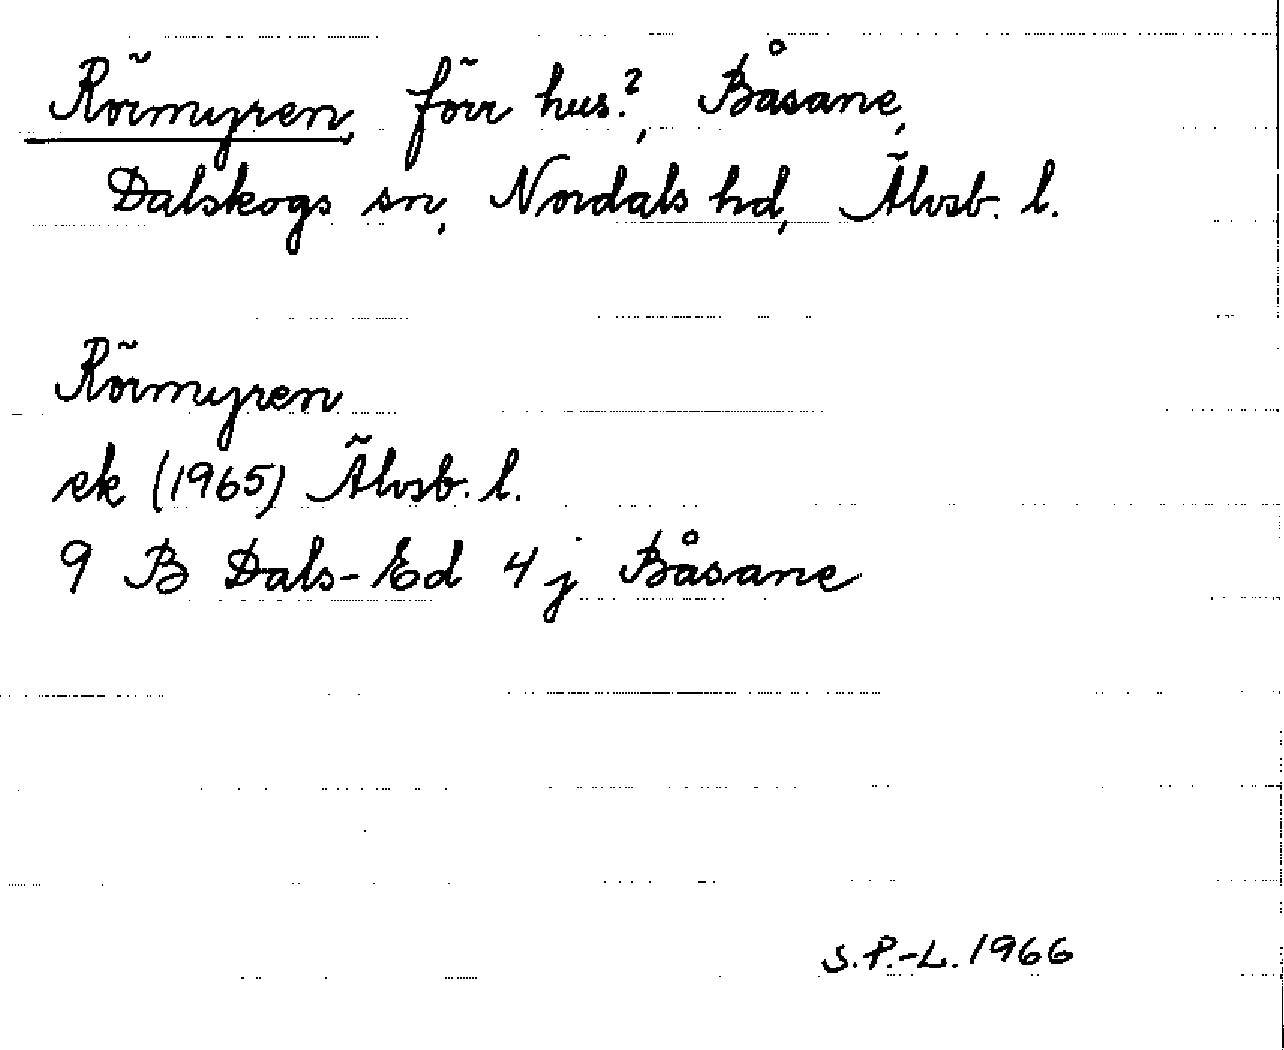 Rörmyren, förr hus?, Båsane,
Dalskogs sn, Nordals hd, Älvsb. l.
Rörmyren
ek (1965) Älvsb. l.
9 B Dals-Ed 4 j Båsane
S.P.-L. 1966